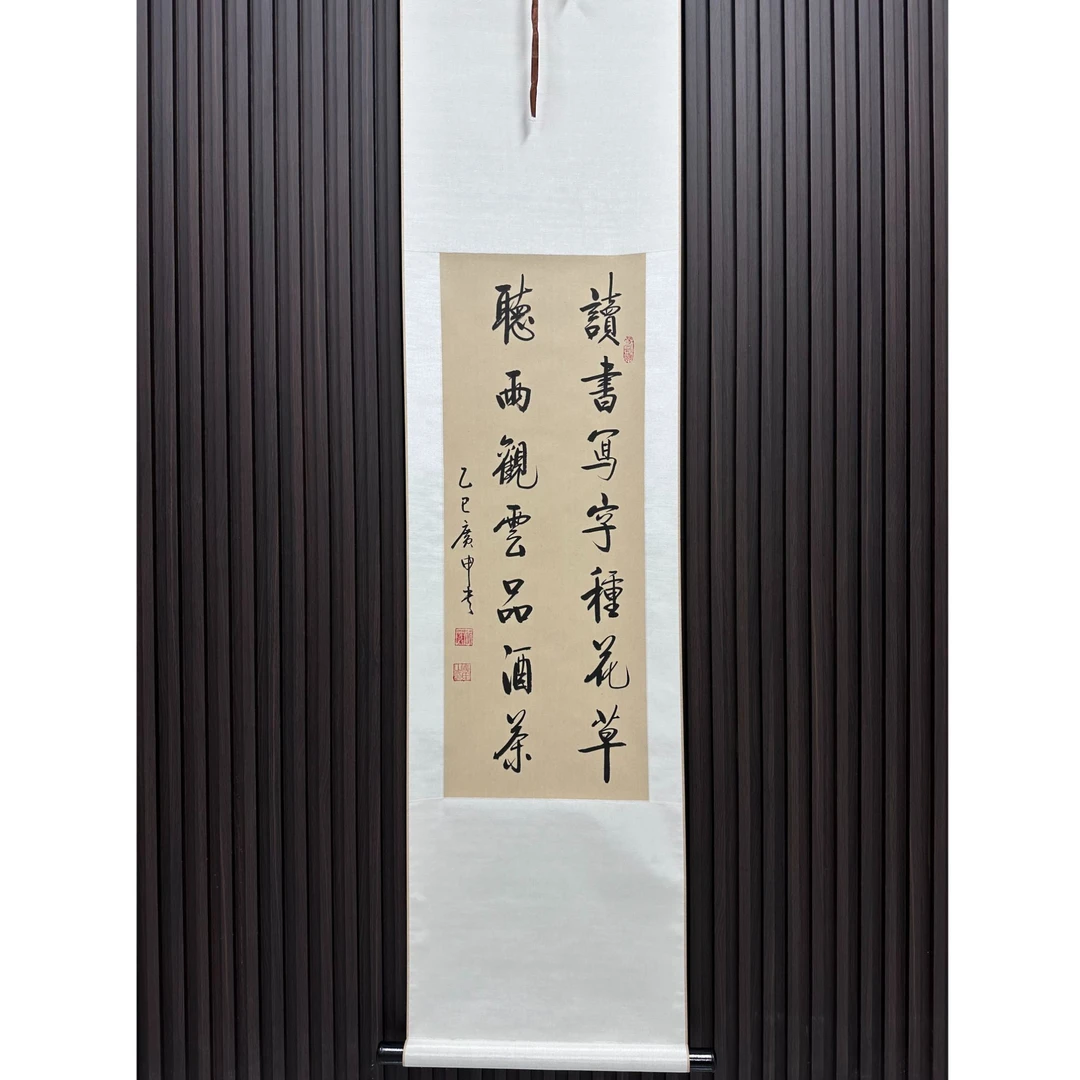 讀書写字種花草
聽雨觀雲品酒茶
乙巳廣申书